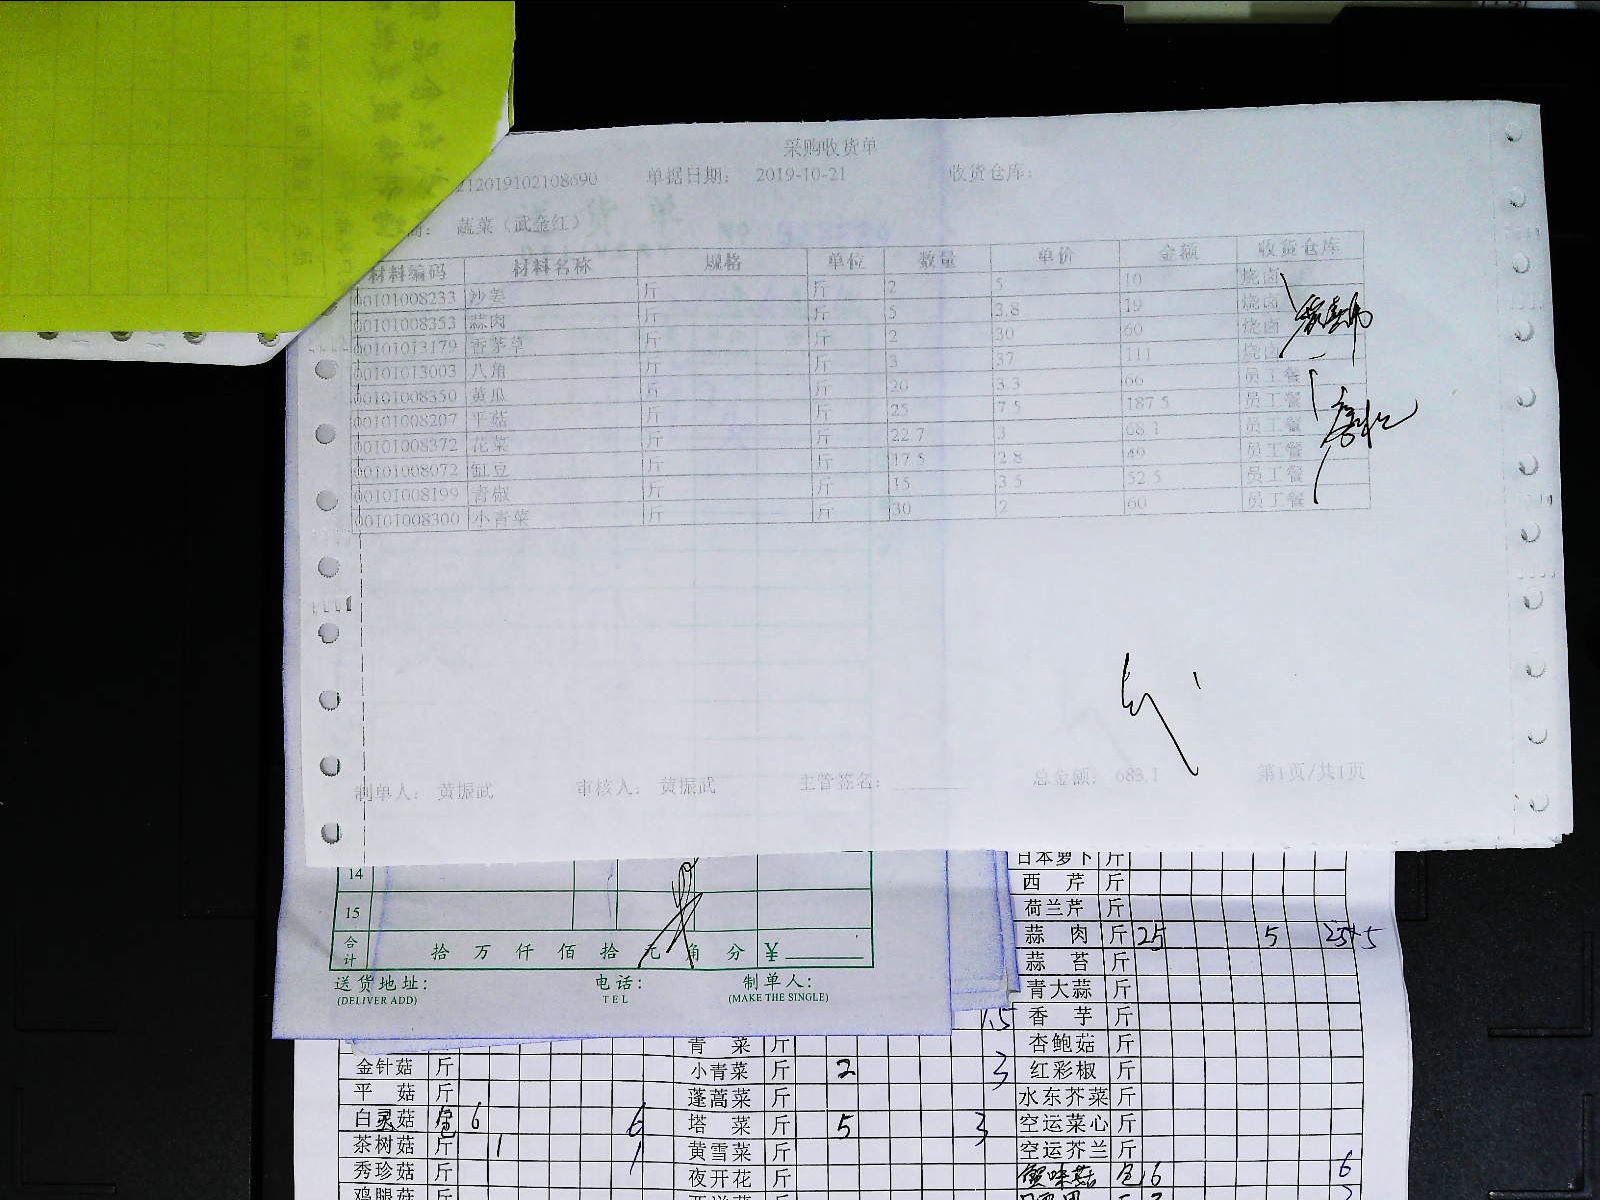 采购收货单
212019102108690 单据日期： 2019-10-21 收货仓库：
商： 蔬菜（武金红）
材料编码 材料名称 规格 单位 数量 单价 金额 收货仓库
00101008233 沙姜 斤 斤 2 5 10 烧卤
00101008353 蒜肉 斤 斤 5 3.8 19 烧卤
00101013179 香茅草 斤 斤 2 30 60 烧卤
00101013003 八角 斤 斤 3 37 111 烧卤
00101008350 黄瓜 斤 斤 20 3.3 66 员工餐
00101008207 平菇 斤 斤 25 7.5 187.5 员工餐
00101008372 花菜 斤 斤 22.7 3 68.1 员工餐
00101008072 缸豆 斤 斤 17.5 2.8 49 员工餐
00101008199 青椒 斤 斤 15 3.5 52.5 员工餐
00101008300 小青菜 斤 斤 30 2 60 员工餐
制单人： 黄振武 审核人： 黄振武 主管签名： 总金额： 683.1 第1页/共1页
14
15
合计 拾 万 仟 佰 拾 元 角 分 ¥
送货地址： 电话： 制单人：
(DELIVER ADD) TEL (MAKE THE SINGLE)
日本萝卜 斤
西芹 斤
荷兰芹 斤
蒜肉 斤 25 5
蒜苔 斤
青大蒜 斤
1.5 香芋 斤
青菜 斤 杏鲍菇 斤
金针菇 斤 小青菜 斤 2 3 红彩椒 斤
平菇 斤 蓬蒿菜 斤 水东芥菜 斤
白灵菇 包 6 6 塔菜 斤 5 3 空运菜心 斤
茶树菇 斤 1 1 黄雪菜 斤 空运芥兰 斤
秀珍菇 斤 夜开花 斤 蟹味菇 包 6 6
鸡腿菇 斤